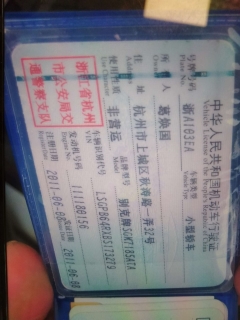 中华人民共和国机动车行驶证
Vehicle License of the People's Republic of China
号牌号码 浙A103EA 车辆类型 小型轿车
Plate No. Vehicle Type
所有人
Owner
住 址 杭州市上城区秋涛路一弄32号
Address
使用性质 非营运 品牌型号 别克牌SGM7185ATA
Use Character Model
浙江省杭州
市公安局交
通警察支队
车辆识别代号 LSGPB64RXBS173279
VIN
发动机号码 111180156
Engine No.
注册日期 2011-06-08 发证日期 2011-06-08
Register Date Issue Date